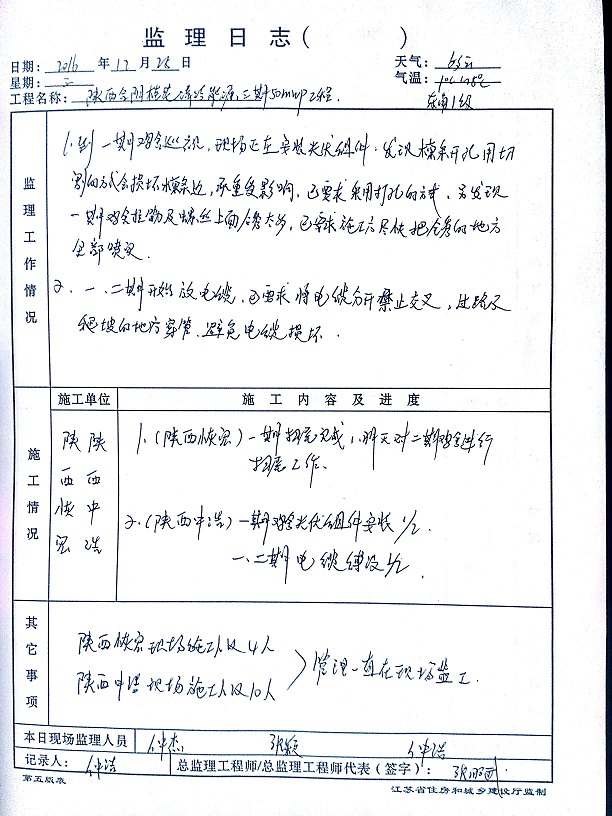 监 理 日 志 (          )
日期: 2016 年 12 月 28 日
天气:
星期: 三
气温:
工程名称: 陕西合阳 二期50mwp工程.
东南1级
监理工作情况
1. 一期鸡舍巡视, 现场正在安装光伏组件. 发现檩条开孔用切
割的方式会损坏檩条边, 承重受影响, 已要求采用打孔的方式. 另发现
一期鸡舍 及螺丝上面 已要求施工方尽快把 的地方
全部喷 .
2. 一、二期开始放电缆, 已要求将电缆分开禁止交叉, 过路及
爬坡的地方穿管. 避免电缆损坏.
施工情况
施工单位
施 工 内 容 及 进 度
陕西 宏
陕西中浩
1. (陕西 宏) 一期扫尾完成, 明天对二期鸡舍进行
扫尾工作.
2. (陕西中浩) 一期鸡舍光伏组件安装 1/2.
一、二期电缆铺设 1/2.
其它事项
陕西 宏现场施工人员4人
陕西中浩现场施工人员10人
管理一直在现场监工.
本日现场监理人员 仲杰 张颖 仲浩
记录人: 仲浩
总监理工程师/总监理工程师代表(签字):
第五版表
江苏省住房和城乡建设厅监制